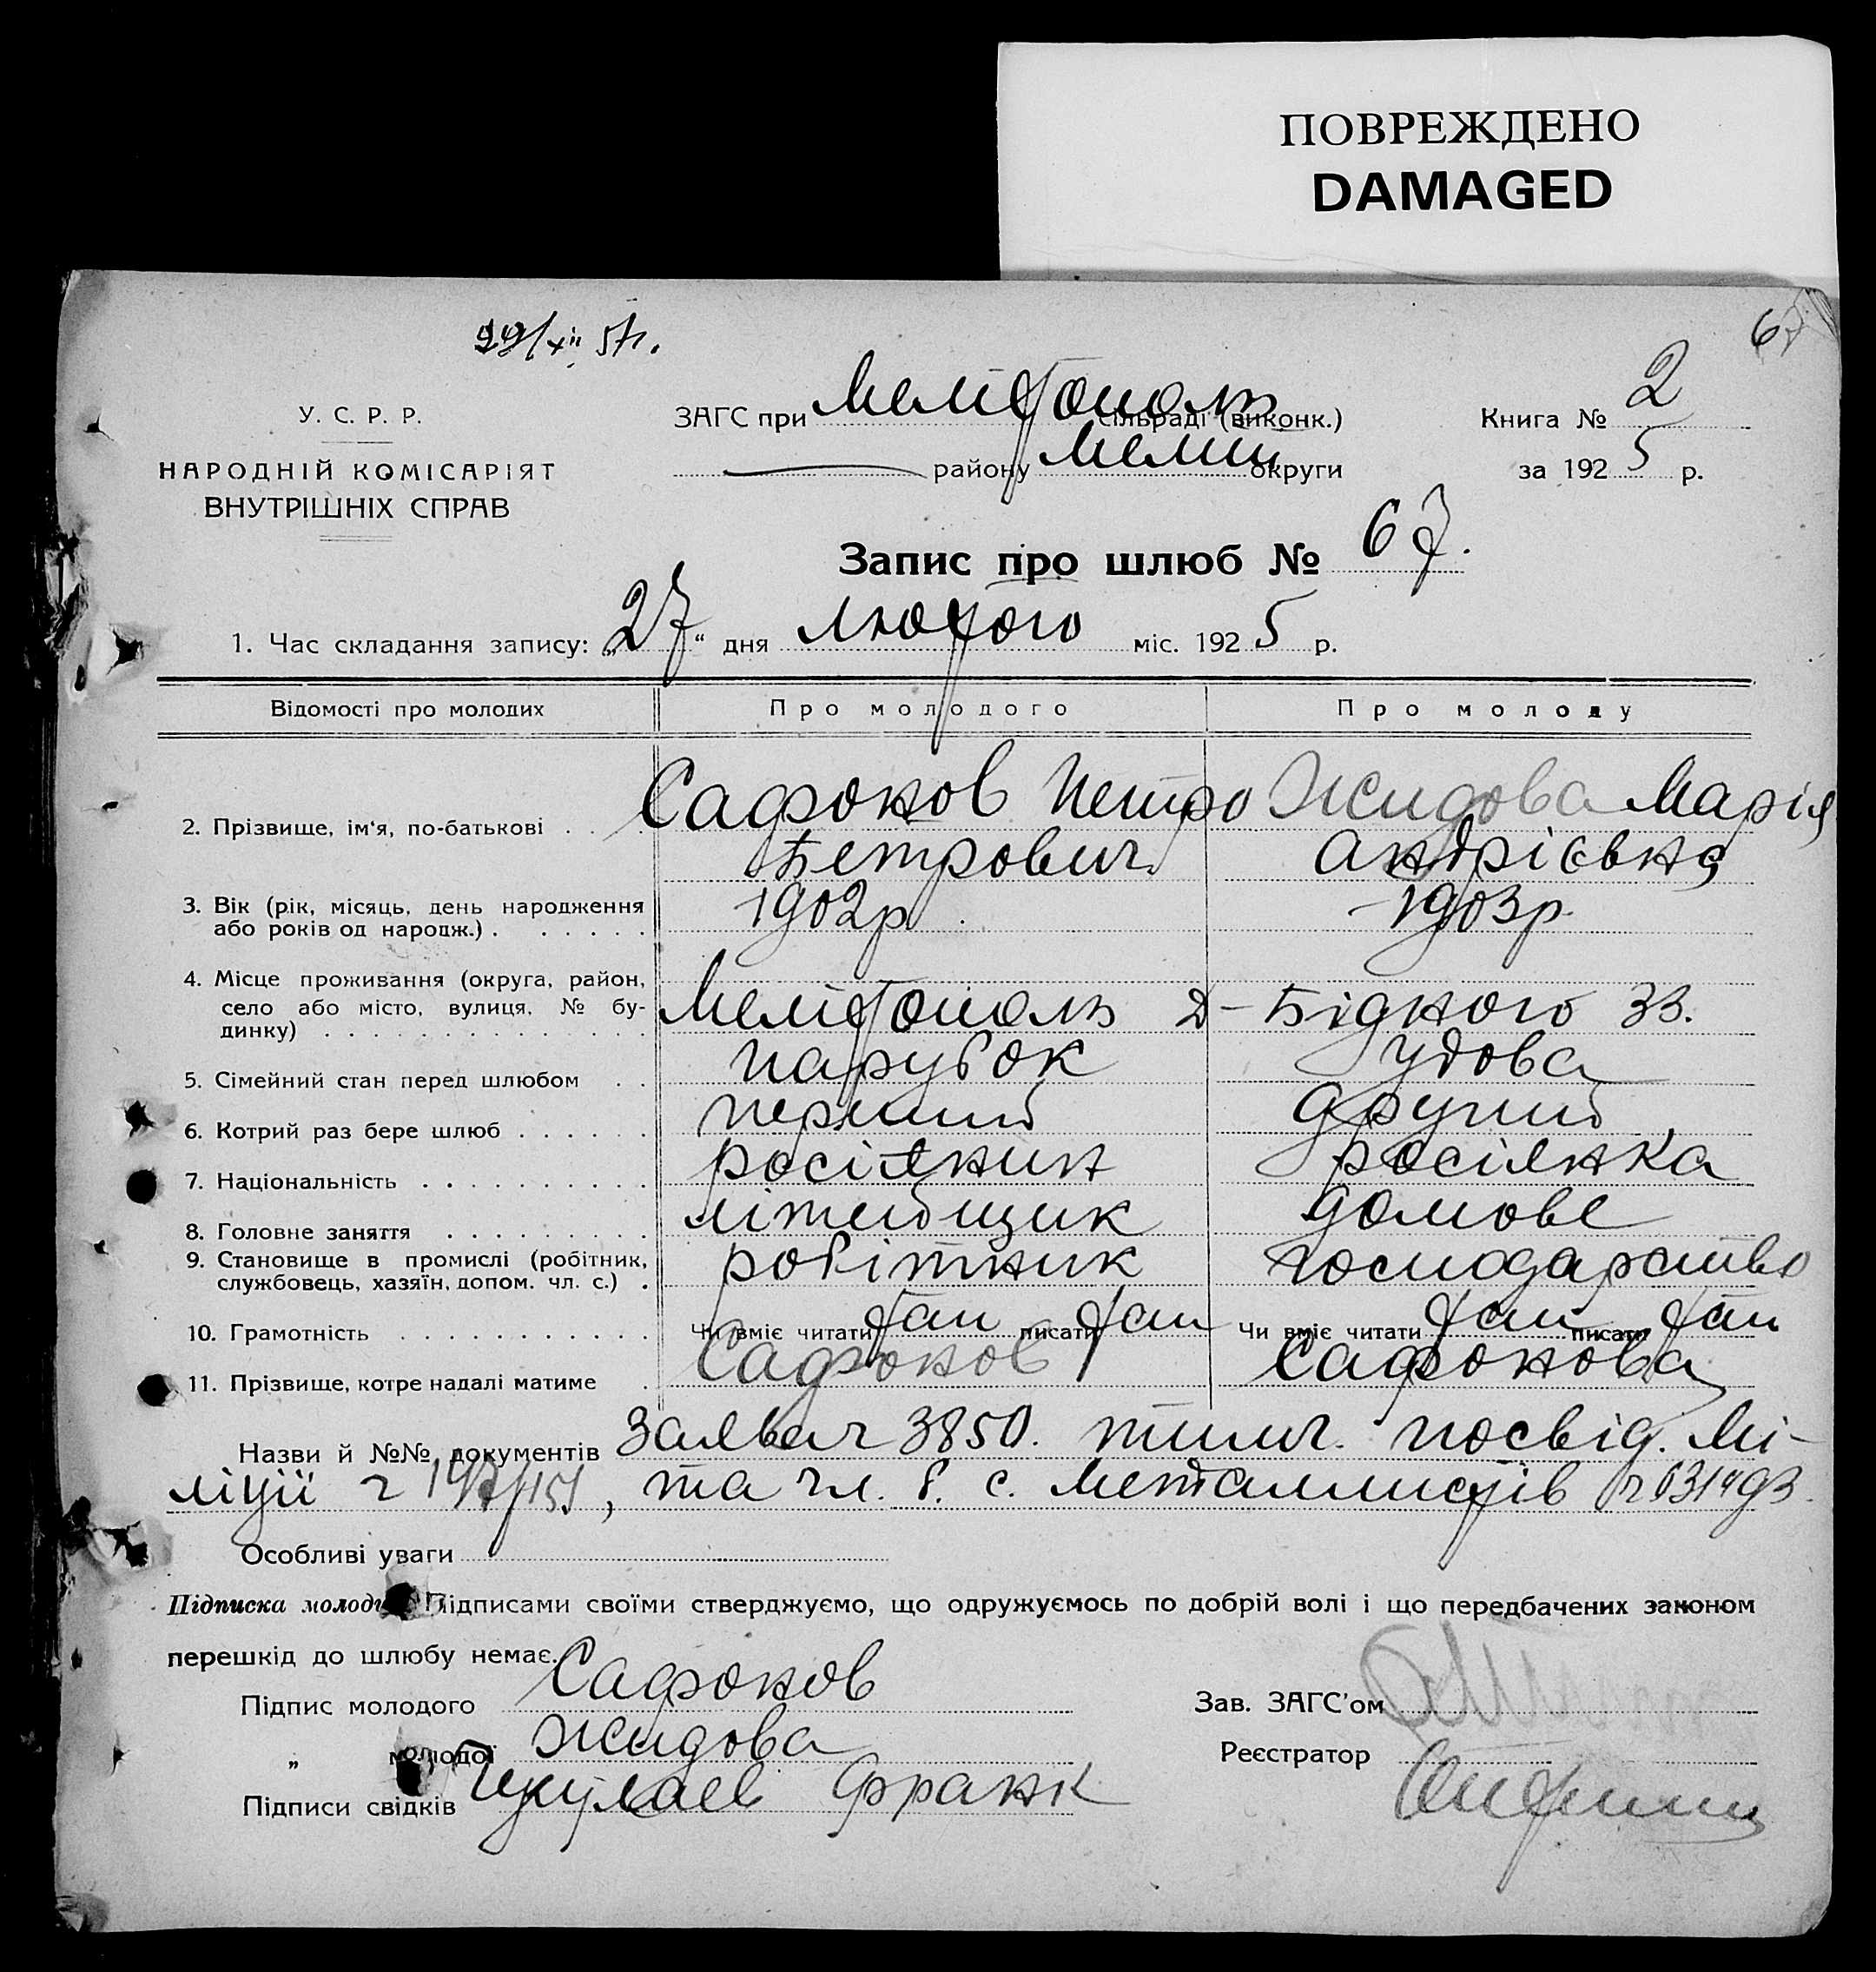 ПОВРЕЖДЕНО
DAMAGED
67
У. С. Р. Р.
НАРОДНІЙ КОМІСАРІЯТ
ВНУТРІШНІХ СПРАВ
ЗАГС при Мелітополь сільраді (виконк.)
району Мелит округи
Книга № 2
за 1925 р.
Запис про шлюб № 67.
1. Час складання запису: „27“ дня лютого міс. 1925 р.
Відомості про молодих Про молодого Про молоду
2. Прізвище, ім'я, по-батькові Сафонов Петро Жидова Марія
Петрович Андрієвна
3. Вік (рік, місяць, день народження 1902р 1903р
або років од народж.)
4. Місце проживання (округа, район,
село або місто, вулиця, № бу- Мелітополь Д-Бідного 33.
динку)
5. Сімейний стан перед шлюбом парубок удова
6. Котрий раз бере шлюб перший другий
7. Національність росіянин росіянка
8. Головне заняття літейщик домове
9. Становище в промислі (робітник, робітник господарство
службовець, хазяїн, допом. чл. с.)
10. Грамотність Чи вміє читати так писати так Чи вміє читати так писати так
11. Прізвище, котре надалі матиме Сафонов Сафонова
Назви й №№ документів Заява ч 3850. тимч. посвід. Мі-
ліції ч , та чл. б. с. Металлистів
Особливі уваги
Підписка молодих Підписами своїми стверджуємо, що одружуємось по добрій волі і що передбачених законом
перешкід до шлюбу немає.
Підпис молодого Сафонов
Зав. ЗАГС'ом
„ молодої Жидова
Реєстратор
Підписи свідків Франк